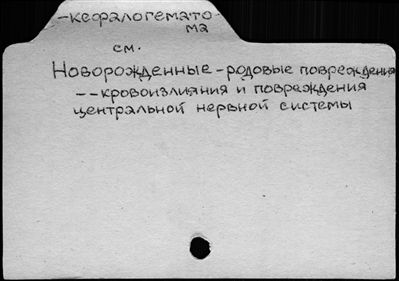 -кефалогемато
ма
см.
Новорожденные - родовые повреждения
-- кровоизлияния и повреждения
центральной нервной системы